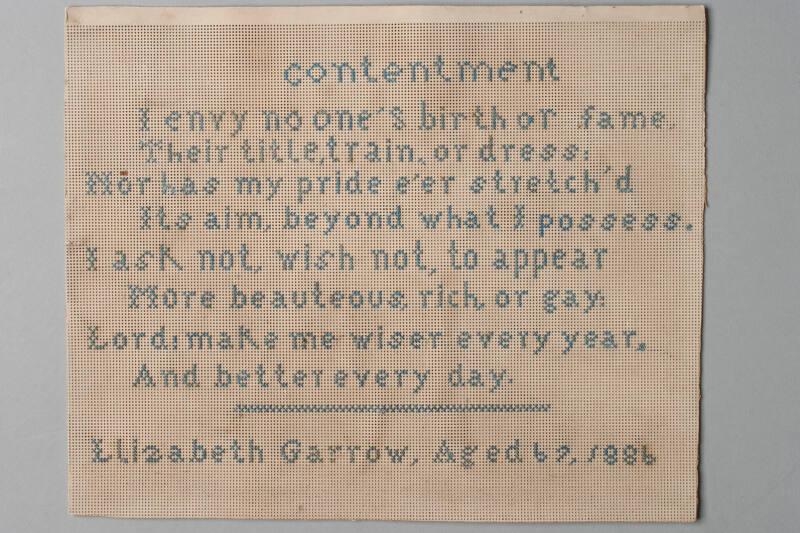 contentment
I envy no one's birth or fame,
Their title, train, or dress:
Nor has my pride e'er stretch'd
Its aim, beyond what I possess.
I ask not, wish not, to appear
More beauteous, rich, or gay:
Lord: make me wiser every year,
And better every day.
Elizabeth Garrow, Aged 69, 1886